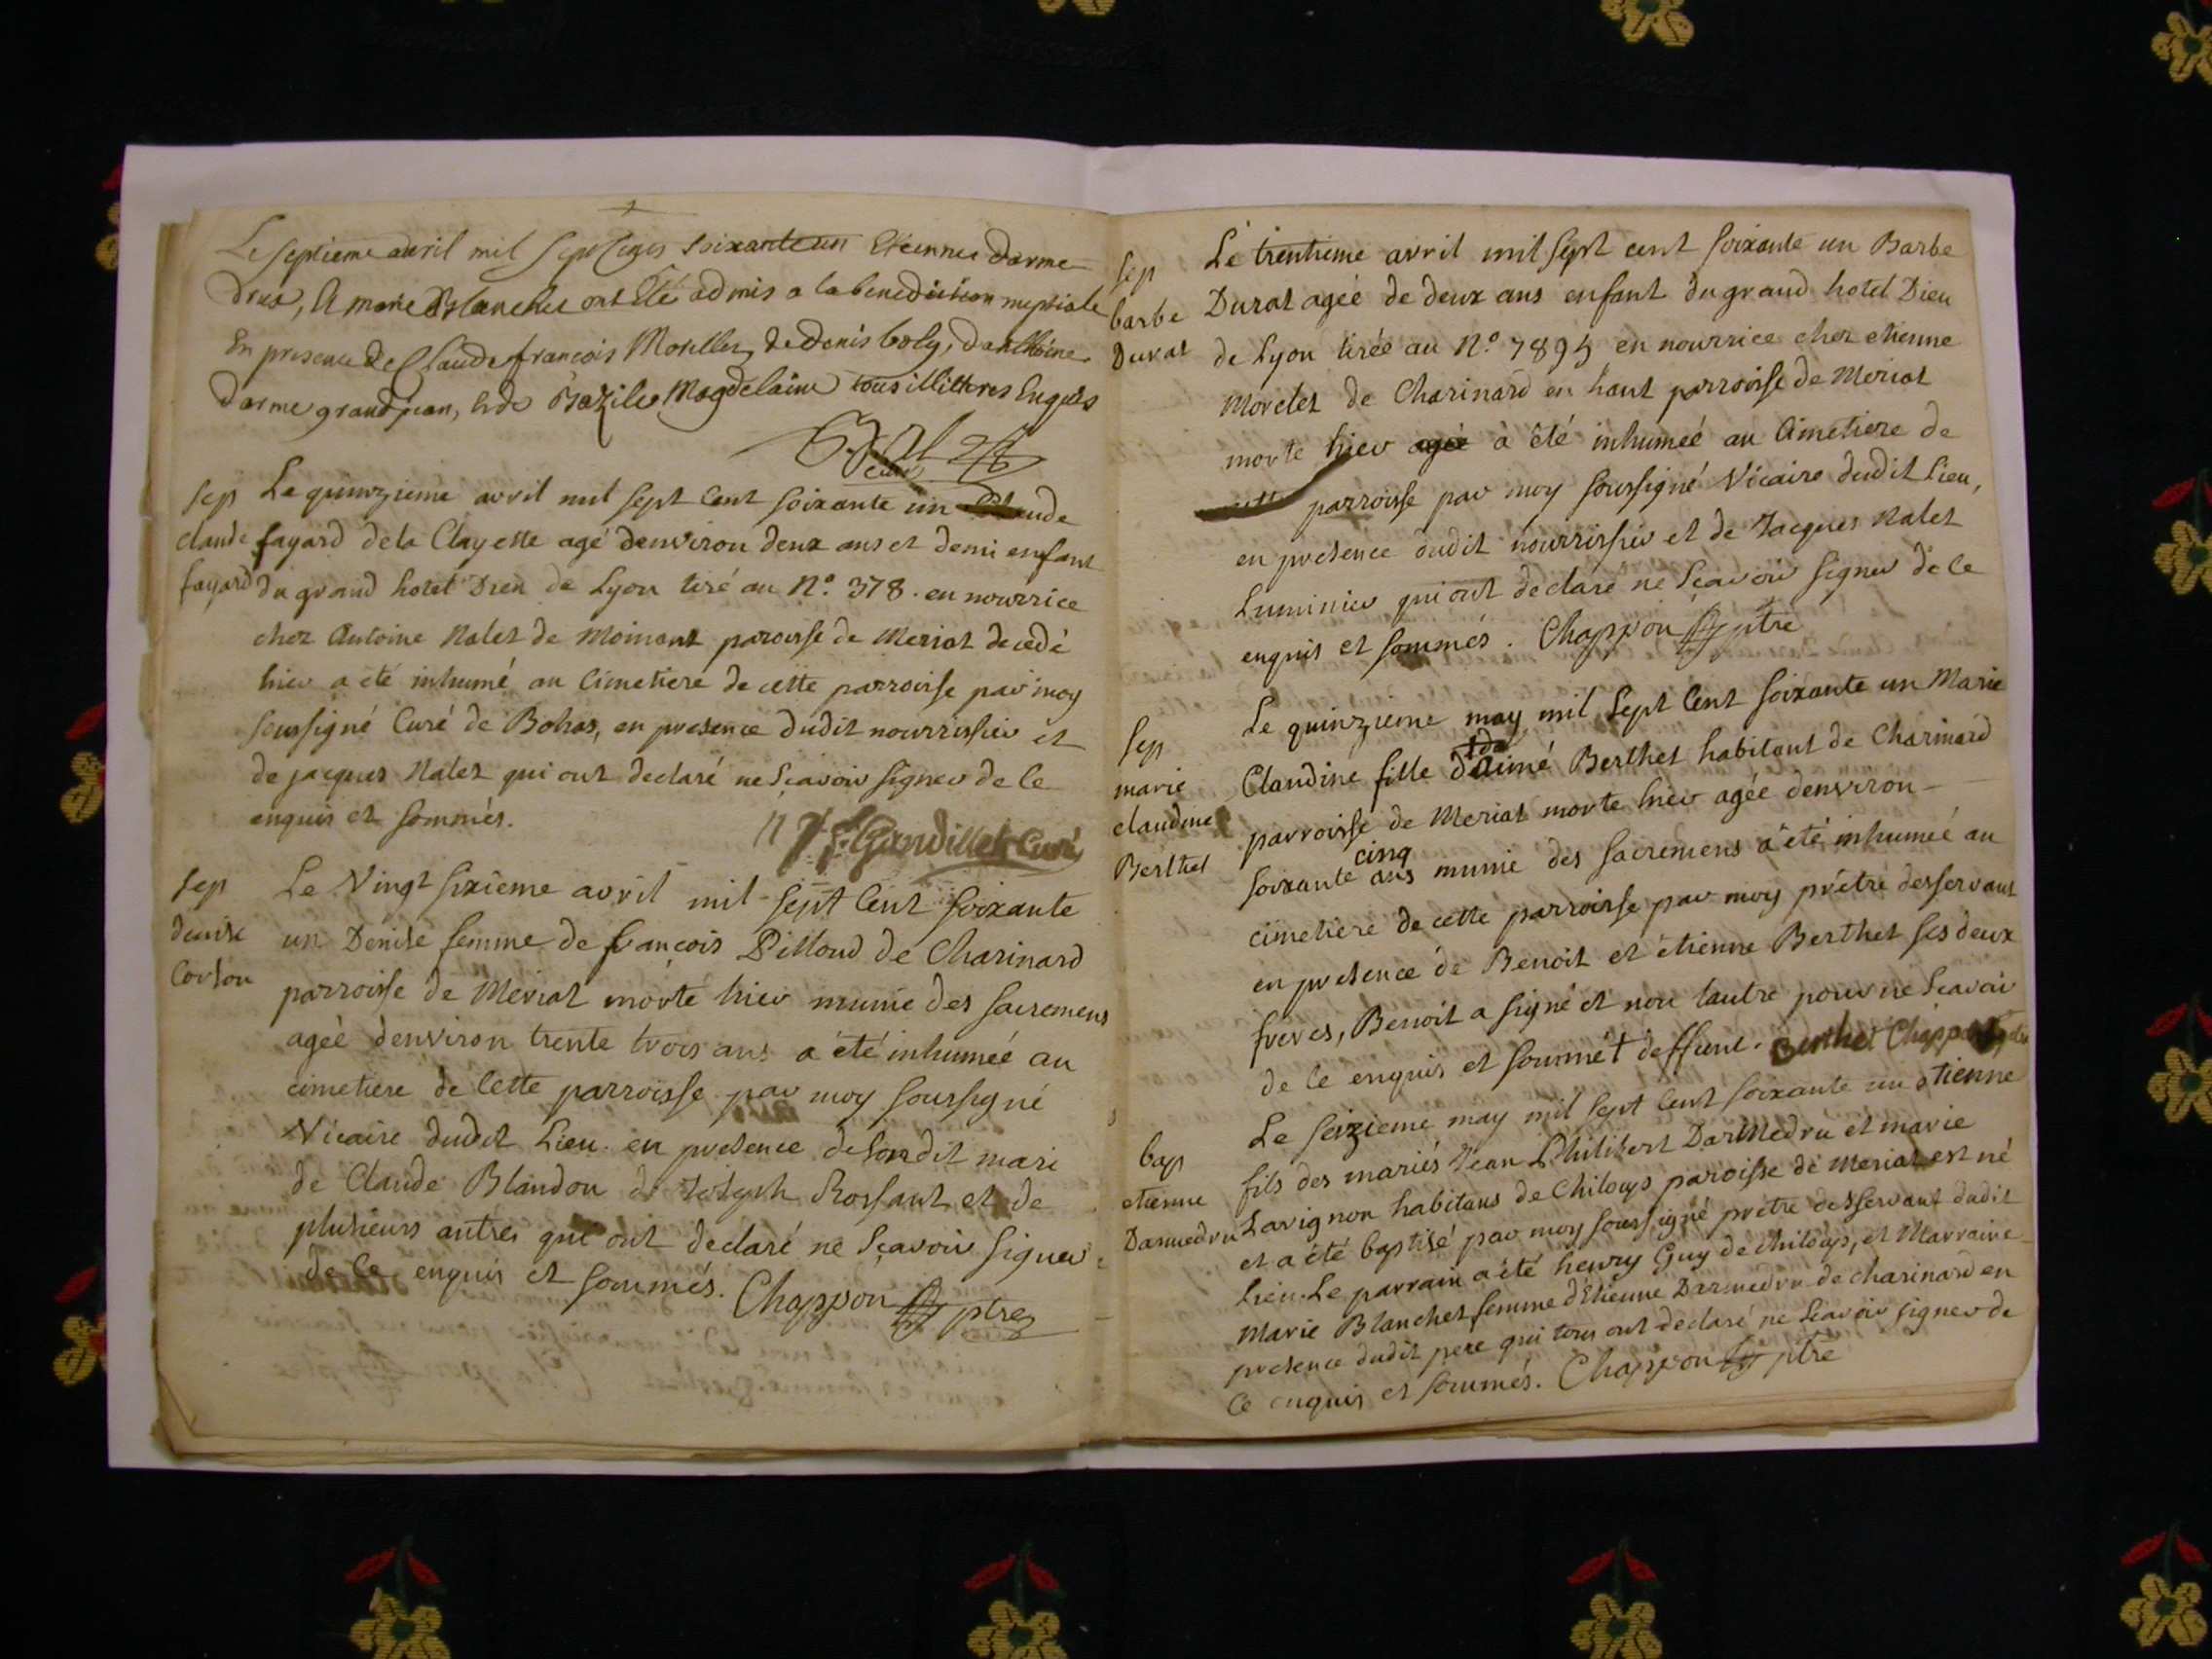 Le septieme avril mil sept cens soixante un Etienne darme
drux, et marie Blanchet ont été admis a la benediction nuptiale
En presence de Claude françois Morellez, de denis boly, d'anthoine
darme grand jean, et de Bazile Magdelaine tous illitteres Enquis
curé
sep
claude
fayard
Le quinzieme avril mil sept cent soixante un Claude
fayard de la Clayette agé denviron deux ans et demi enfant
du grand hotel Dieu de Lyon tiré au N.o 378. en nourrice
chez Antoine Nalet de Moinant paroisse de Meriat decedé
hier a été inhumé au Cimetiere de cette parroisse par moy
soussigné Curé de Bohas, en presence dudit nourrissier et
de jacques Nalet qui ont declaré ne Sçavoir signer de ce
enquis et sommés.
Gandillet Curé
sep
denise
Corton
Le Vingt sixieme avril mil sept cent soixante
un Denise femme de françois Pilloud de Charinard
parroisse de Meriat morte hier munie des sacremens
ageé denviron trente trois ans a été inhumeé au
cimetiere de cette parroisse par moy soussigné
Vicaire dudit Lieu en presence de sondit mari
de Claude Blandon de Joseph Rossant et de
plusieurs autres qui ont declaré ne Sçavoir signer
de ce enquis et sommés. Chappon ptre
sep
barbe
Durat
Le trentieme avril mil sept cent soixante un Barbe
Durat ageé de deux ans enfant du grand hotel Dieu
de Lyon tirée au N.o 7895 en nourrice chez etienne
Morelet de Charinard en haut parroisse de Meriat
morte hier ageé à été inhumeé au Cimetiere de
cette parroisse par moy soussigné Vicaire dudit Lieu,
en presence dudit nourrissier et de Jacques Nalet
Luminier qui ont declaré ne Sçavoir signer de ce
enquis et sommés. Chappon ptre
sep
marie
claudine
Berthet
Le quinzieme may mil sept cent soixante un Marie
Claudine fille d'aimé Berthet habitant de Charinard
parroisse de Meriat morte hier agée denviron
soixante cinq ans munie des sacremens a été inhumeé au
cimetiere de cette parroisse par moy prêtre desservant
en presence de Benoit et étienne Berthet ses deux
freres, Benoit a signé et non l'autre pour ne Scavoir
de ce enquis et sommé deffunt. Berthet Chappon ptre
bap
etienne
Darmedru
Le seizieme may mil sept cent soixante un etienne
fils des mariés Jean Philibert Darmedru et marie
Lavignon habitans de Chiloup paroisse de Meriat est né
et a été baptisé par moy soussigné prêtre desservant dudit
Lieu. Le parrain a été henry Guy de chiloup, et Marraine
Marie Blanchet femme d'Etienne Darmedru de charinard en
presence dudit pere qui tous ont declaré ne Scavoir signer de
ce enquis et sommés. Chappon ptre